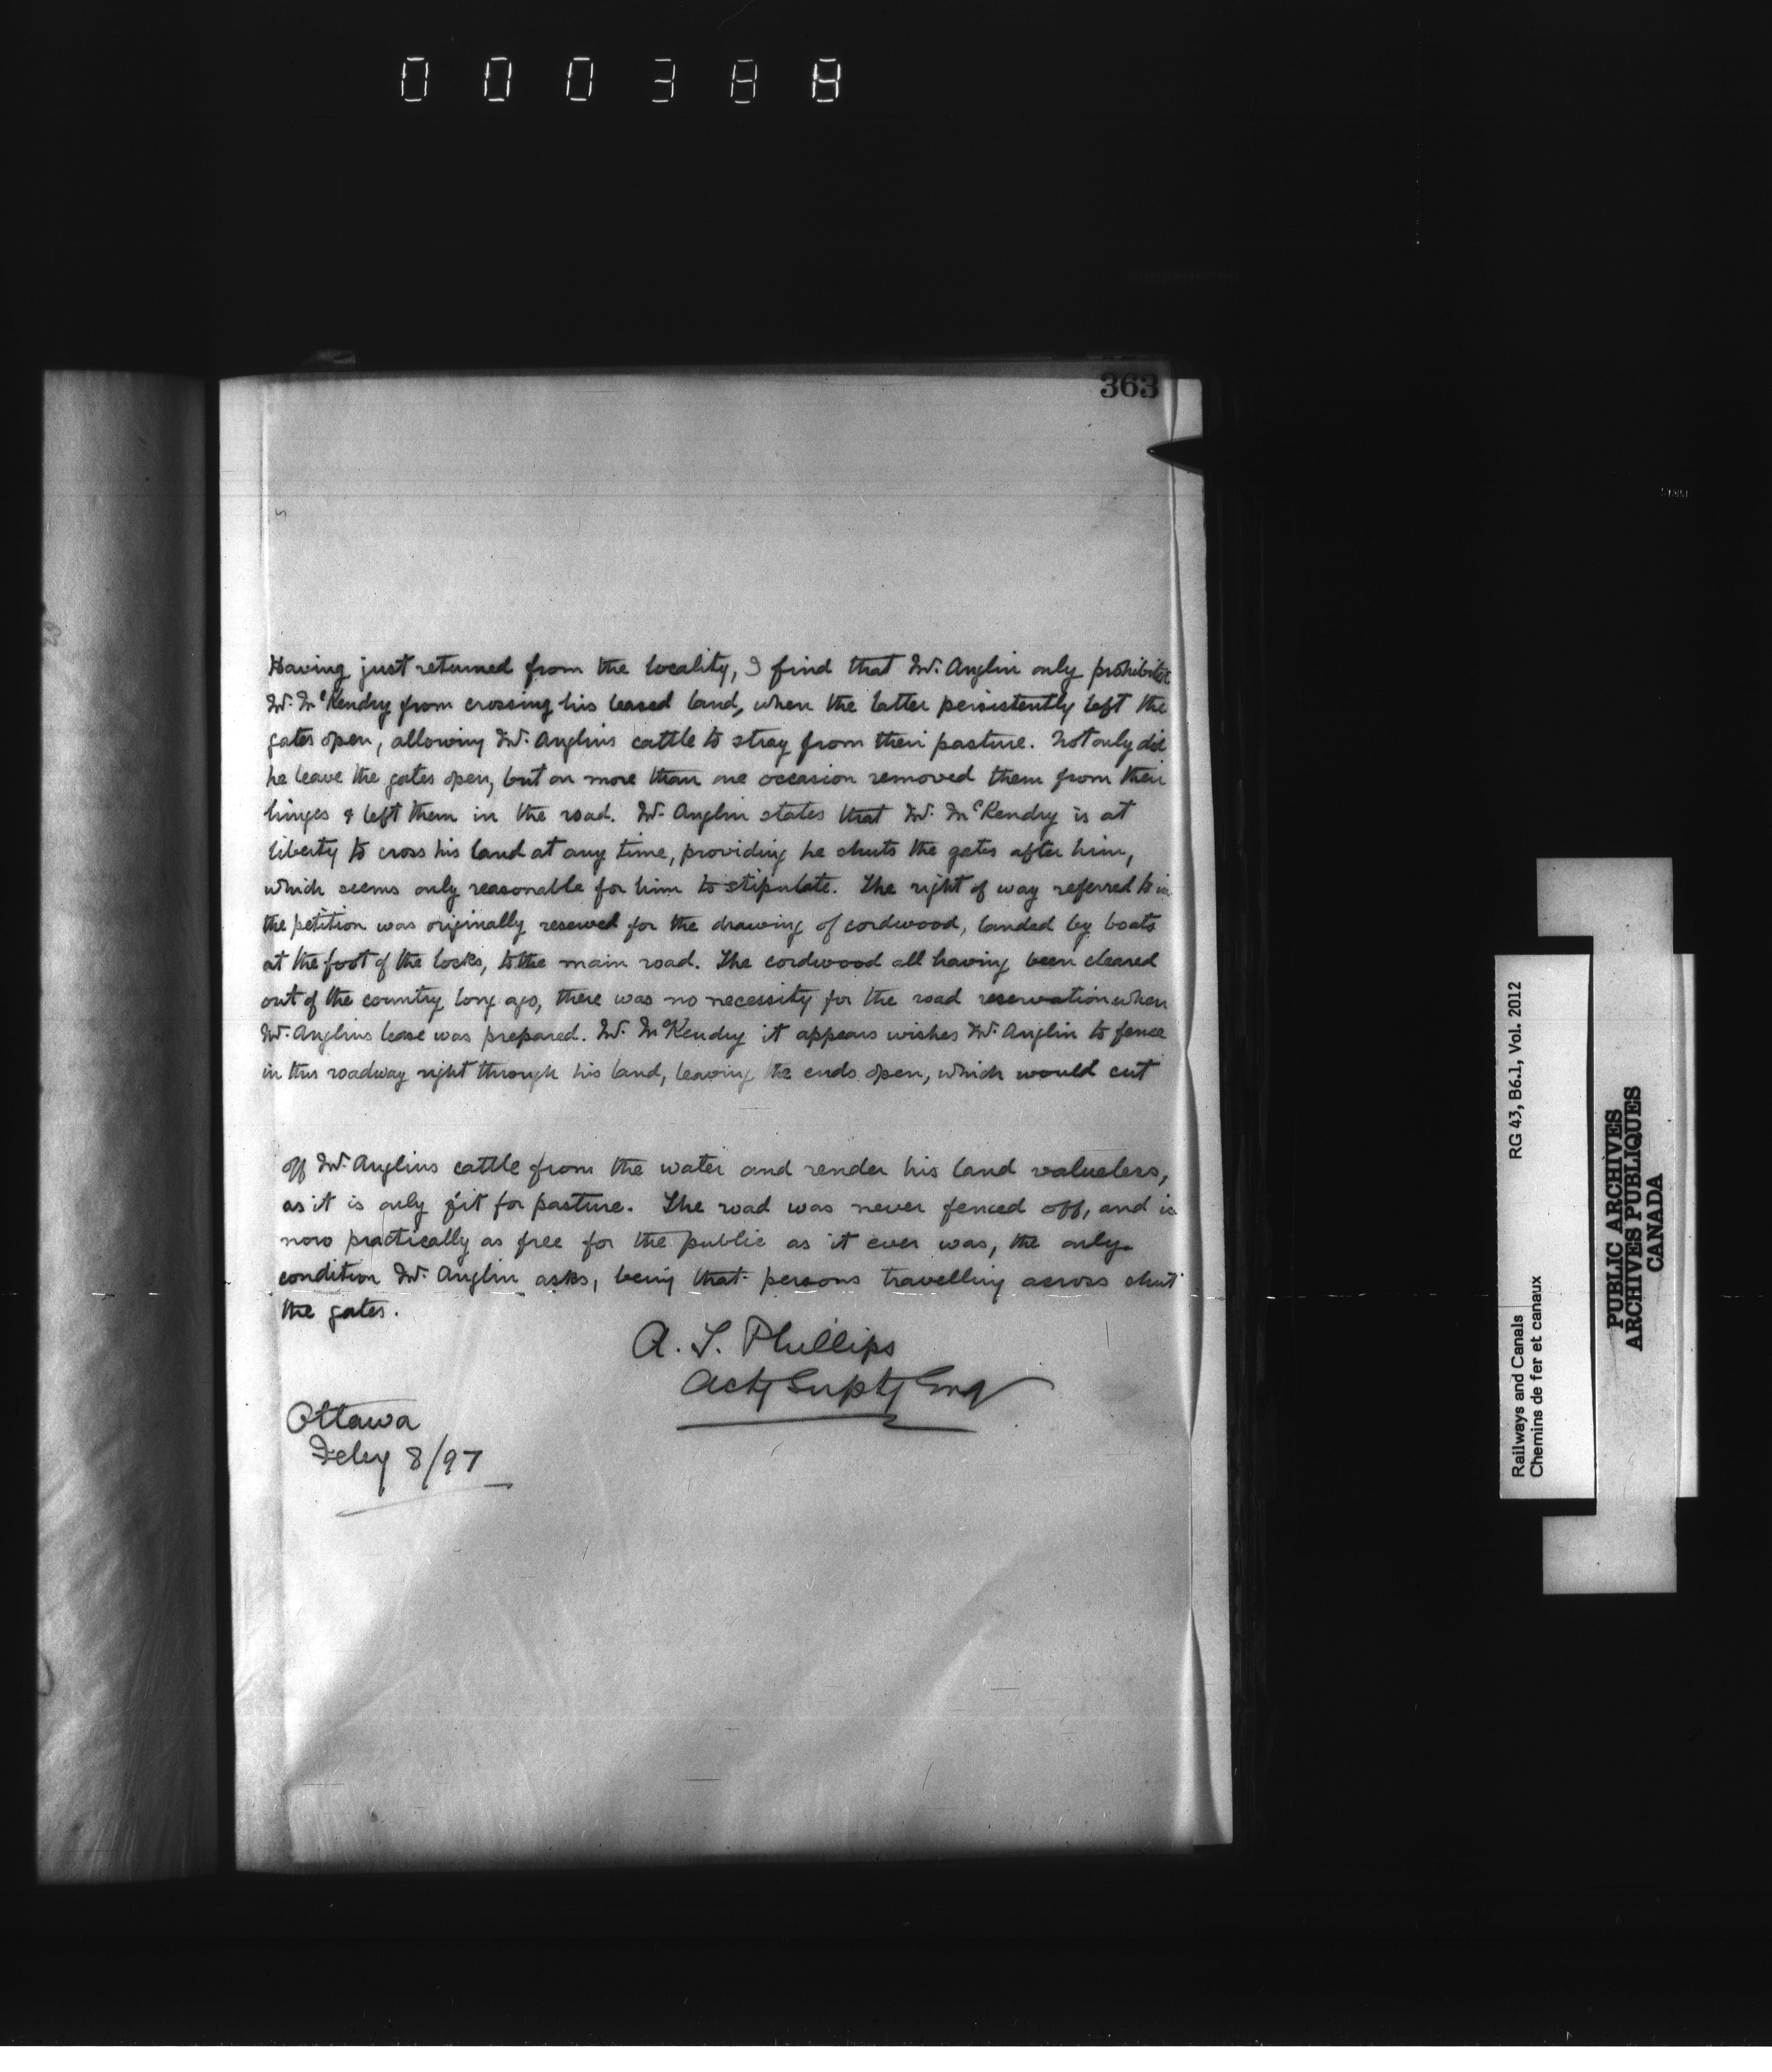 000388
363
Having just returned from the locality, I find that Mr. Anglin only prohibited
Mr. McKendry from crossing his leased land, when the latter persistently left the
gates open, allowing Mr. Anglins cattle to stray from their pasture. Not only did
he leave the gates open, but on more than one occasion removed them from their
hinges & left them in the road. Mr. Anglin states that Mr. McKendry is at
liberty to cross his land at any time, providing he shuts the gates after him,
which seems only reasonable for him to stipulate. The right of way referred to in
the petition was originally reserved for the drawing of cordwood, landed by boats
at the foot of the locks, to the main road. The cordwood all having been cleared
out of the country long ago, there was no necessity for the road reservation when
Mr. Anglins lease was prepared. Mr. McKendry it appears wishes Mr. Anglin to fence
in this roadway right through his land, leaving the ends open, which would cut
off Mr. Anglins cattle from the water and render his land valueless,
as it is only fit for pasture. The road was never fenced off, and is
now practically as free for the public as it ever was, the only
condition Mr. Anglin asks, being that persons travelling across shut
the gates.
A. T. Phillips
Actg Suptg Engr
Ottawa
Feby 8/97
Railways and Canals RG 43, B6.1, Vol. 2012
Chemins de fer et canaux
PUBLIC ARCHIVES
ARCHIVES PUBLIQUES
CANADA